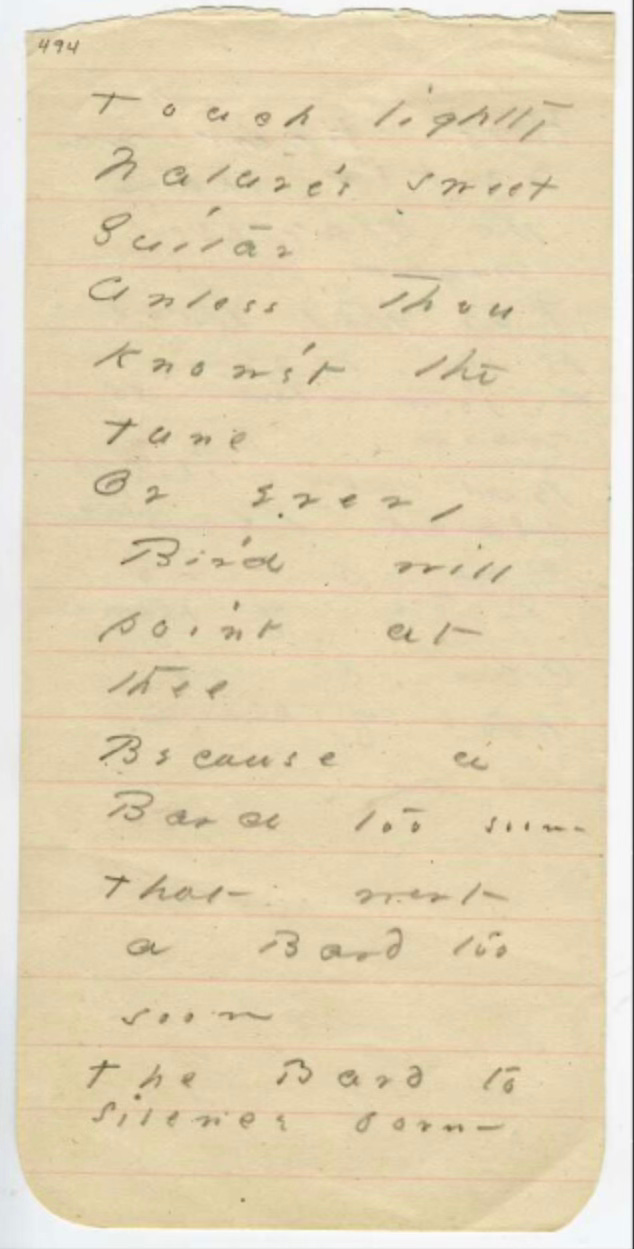 494
Touch lightly
Nature's sweet
Guitar
Unless thou
know'st the
tune
Or every
Bird will
point at
thee
Because a
Bard too soon -
that wert
a Bard too
soon
the Bard to
silence born -